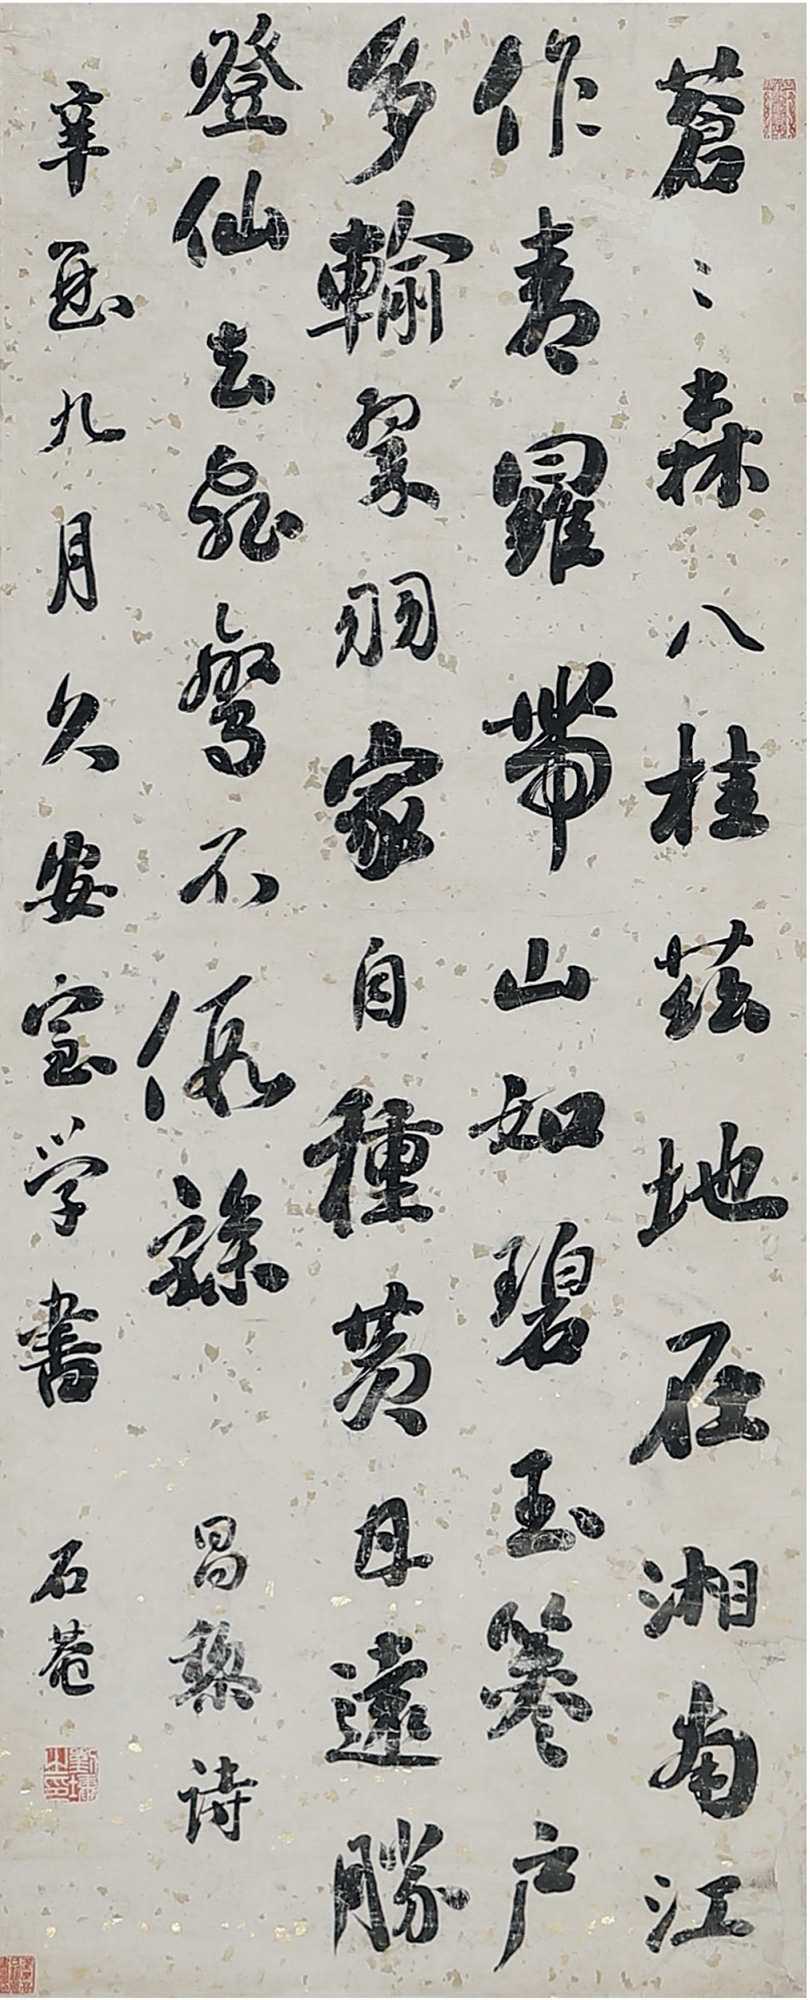 蒼〻森八桂茲地在湘南江
作青羅帶山如碧玉篸户
多輸翠羽家自種黃甘遠勝
登仙去飛鸞不假驂
昌黎詩
辛酉九月久安室学書
石菴
劉墉之印